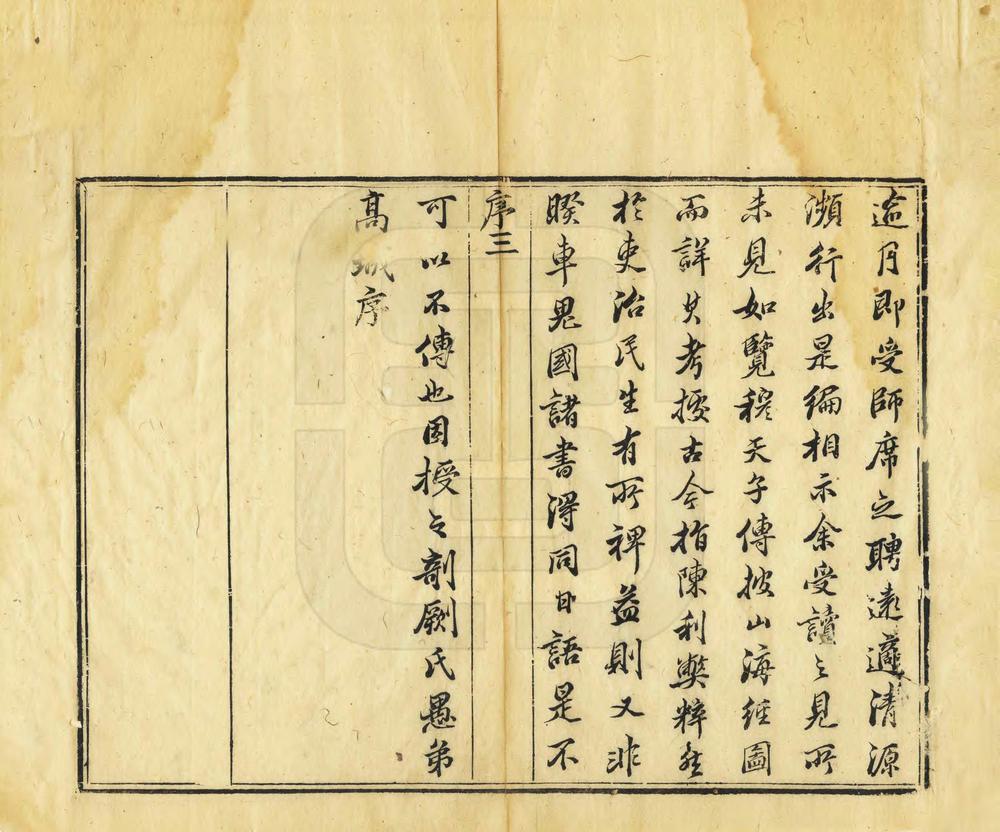 逾月即受師席之聘遠適清源
瀕行出是編相示余受讀之見所
未見如覽穆天子傳披山海經圖
而詳其考援古今指陳利弊粹然
於吏治民生有所裨益則又非
睽車鬼國諸書得同日語是不
序三
可以不傳也因授之剞劂氏愚弟
高 序